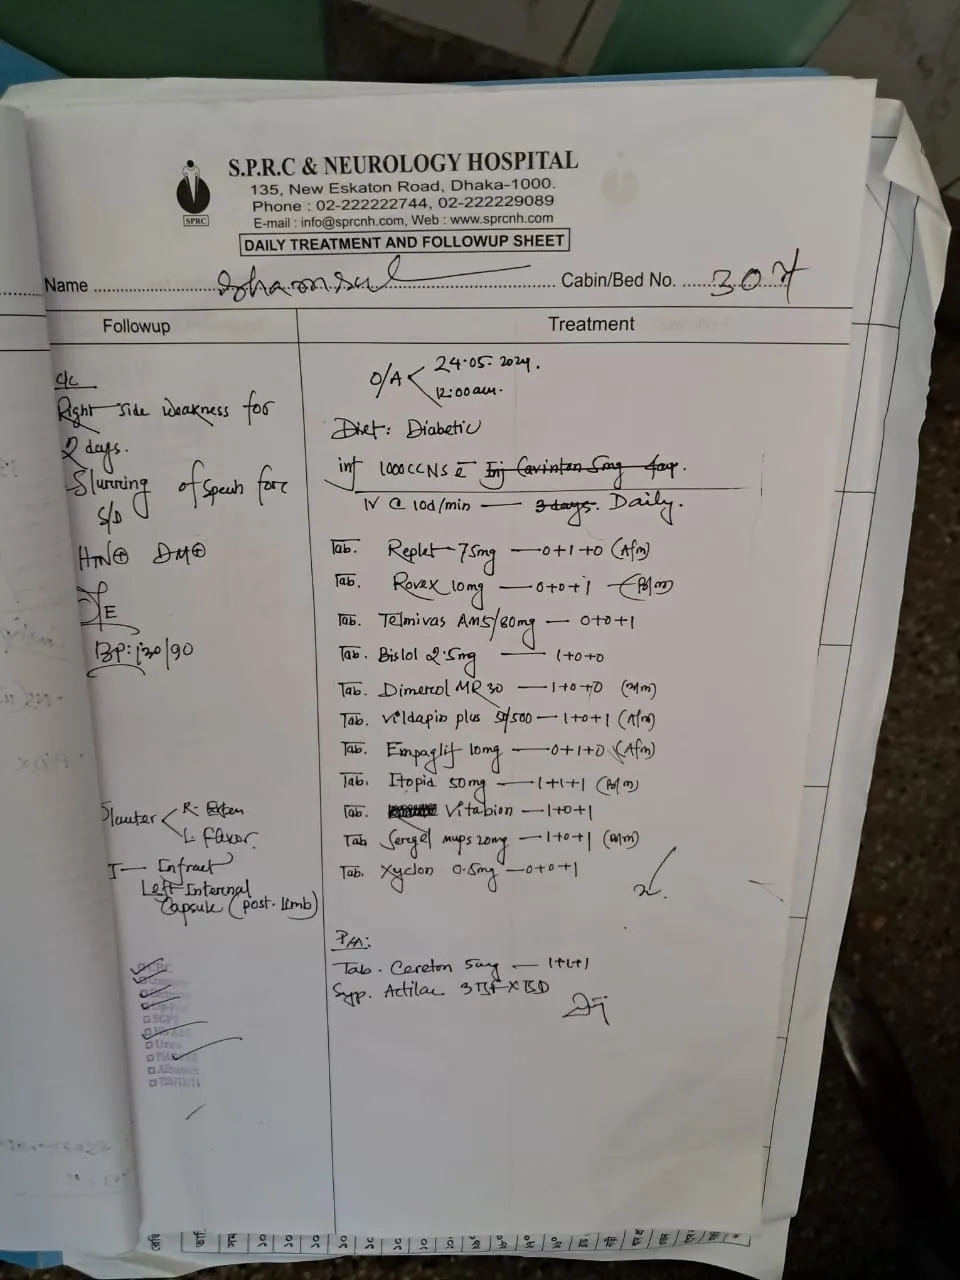 S.P.R.C & NEUROLOGY HOSPITAL
135, New Eskaton Road, Dhaka-1000.
Phone : 02-222222744, 02-222229089
E-mail : info@sprcnh.com, Web : www.sprcnh.com
SPRC
DAILY TREATMENT AND FOLLOWUP SHEET
Name Shamsul Cabin/Bed No. 307
Followup
C/C
Right side weakness for
2 days.
Slurring of speech for
S/D
HTN⊕ DM⊕
O/E
BP: 130/90
Planter < R- Exten
L- flexor.
I— Infract
Left Internal
Capsule (post. limb)
CBC
SGPT
Urea
Treatment
O/A < 24.05.2024.
12:00am.
Diet: Diabetic
inf 1000CC NS c̄ Inj Cavinton 5mg
IV @ 10d/min — 3 days. Daily.
Tab. Replet 75mg — 0+1+0 (A/m)
Tab. Rovex 10mg — 0+0+1 (B/m)
Tab. Telmivas AM 5/80mg — 0+0+1
Tab. Bislol 2.5mg — 1+0+0
Tab. Dimerol MR 30 — 1+0+0
Tab. Vildapin plus 50/500 — 1+0+1 (A/m)
Tab. Empaglif 10mg — 0+1+0 (A/m)
Tab. Itopid 50mg — 1+1+1 (B/m)
Tab. Vitabion — 1+0+1
Tab Sergel mups 20mg — 1+0+1 (B/m)
Tab. Xyclon 0.5mg — 0+0+1
Tab. Cereton 5mg — 1+1+1
Syp. Actilac 3 TSF X BD